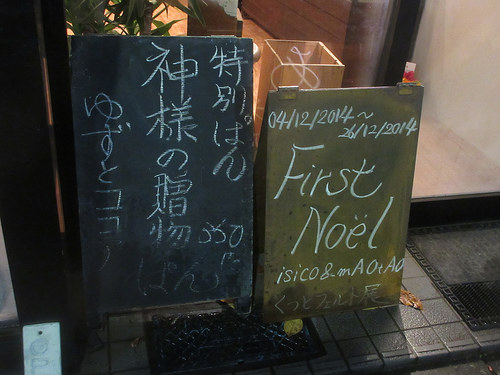 特別ぱん
神様の贈物
ゆずとココ
350円
ぱん
04/12/2014〜
26/12/2014
First
Noël
isico & mAOtAO